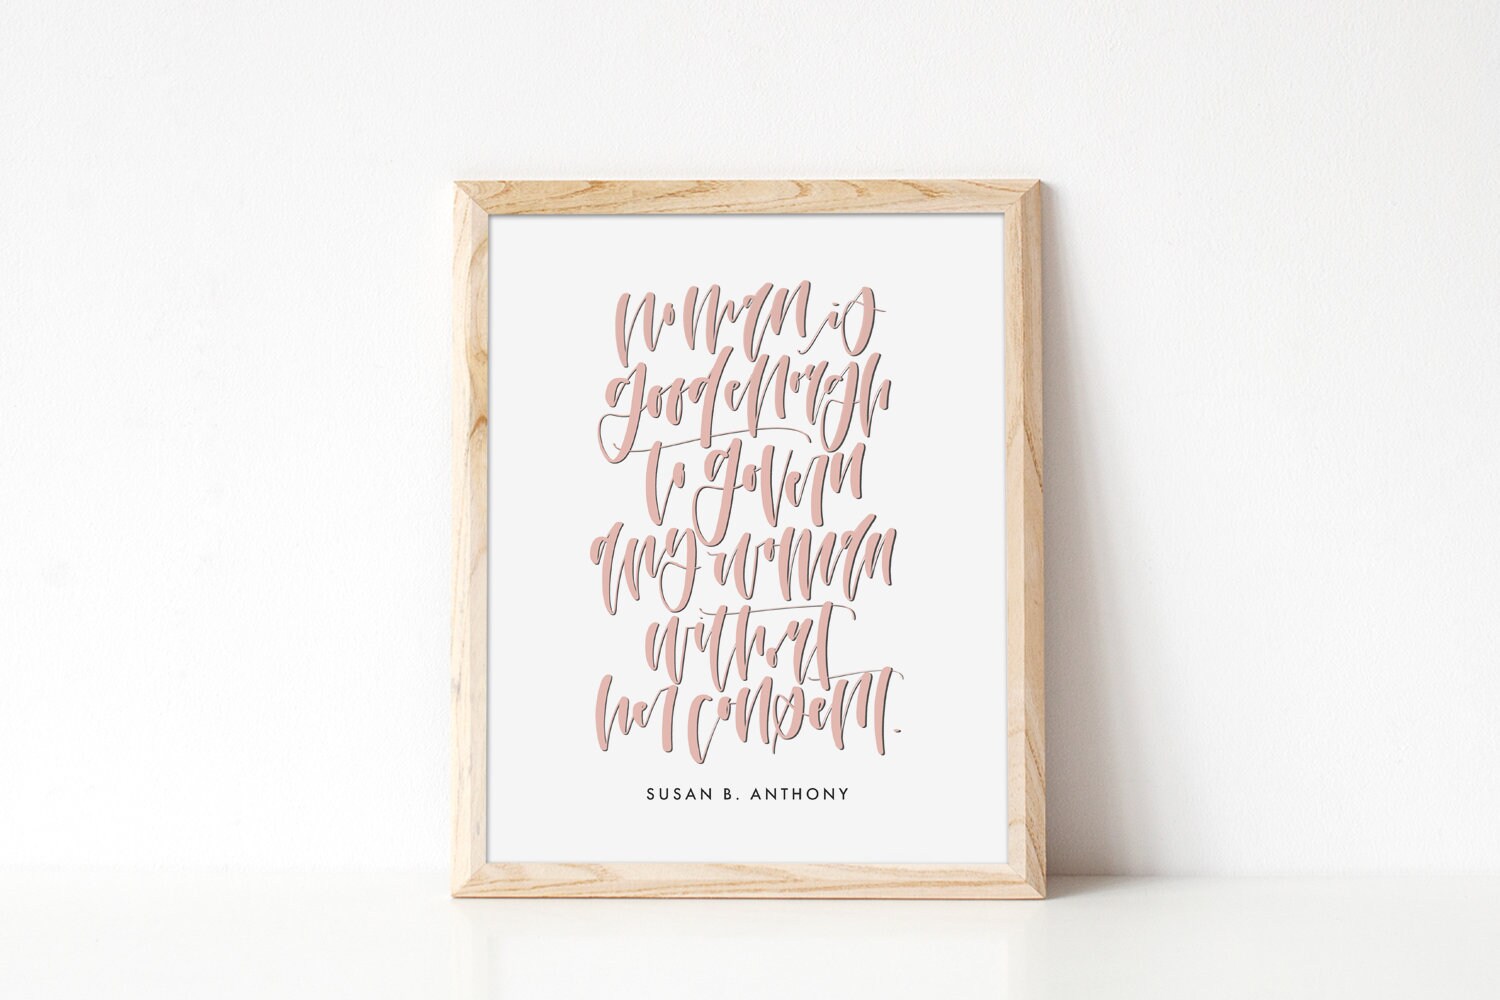 No man is
good enough
to govern
any woman
without
her consent.
SUSAN B. ANTHONY